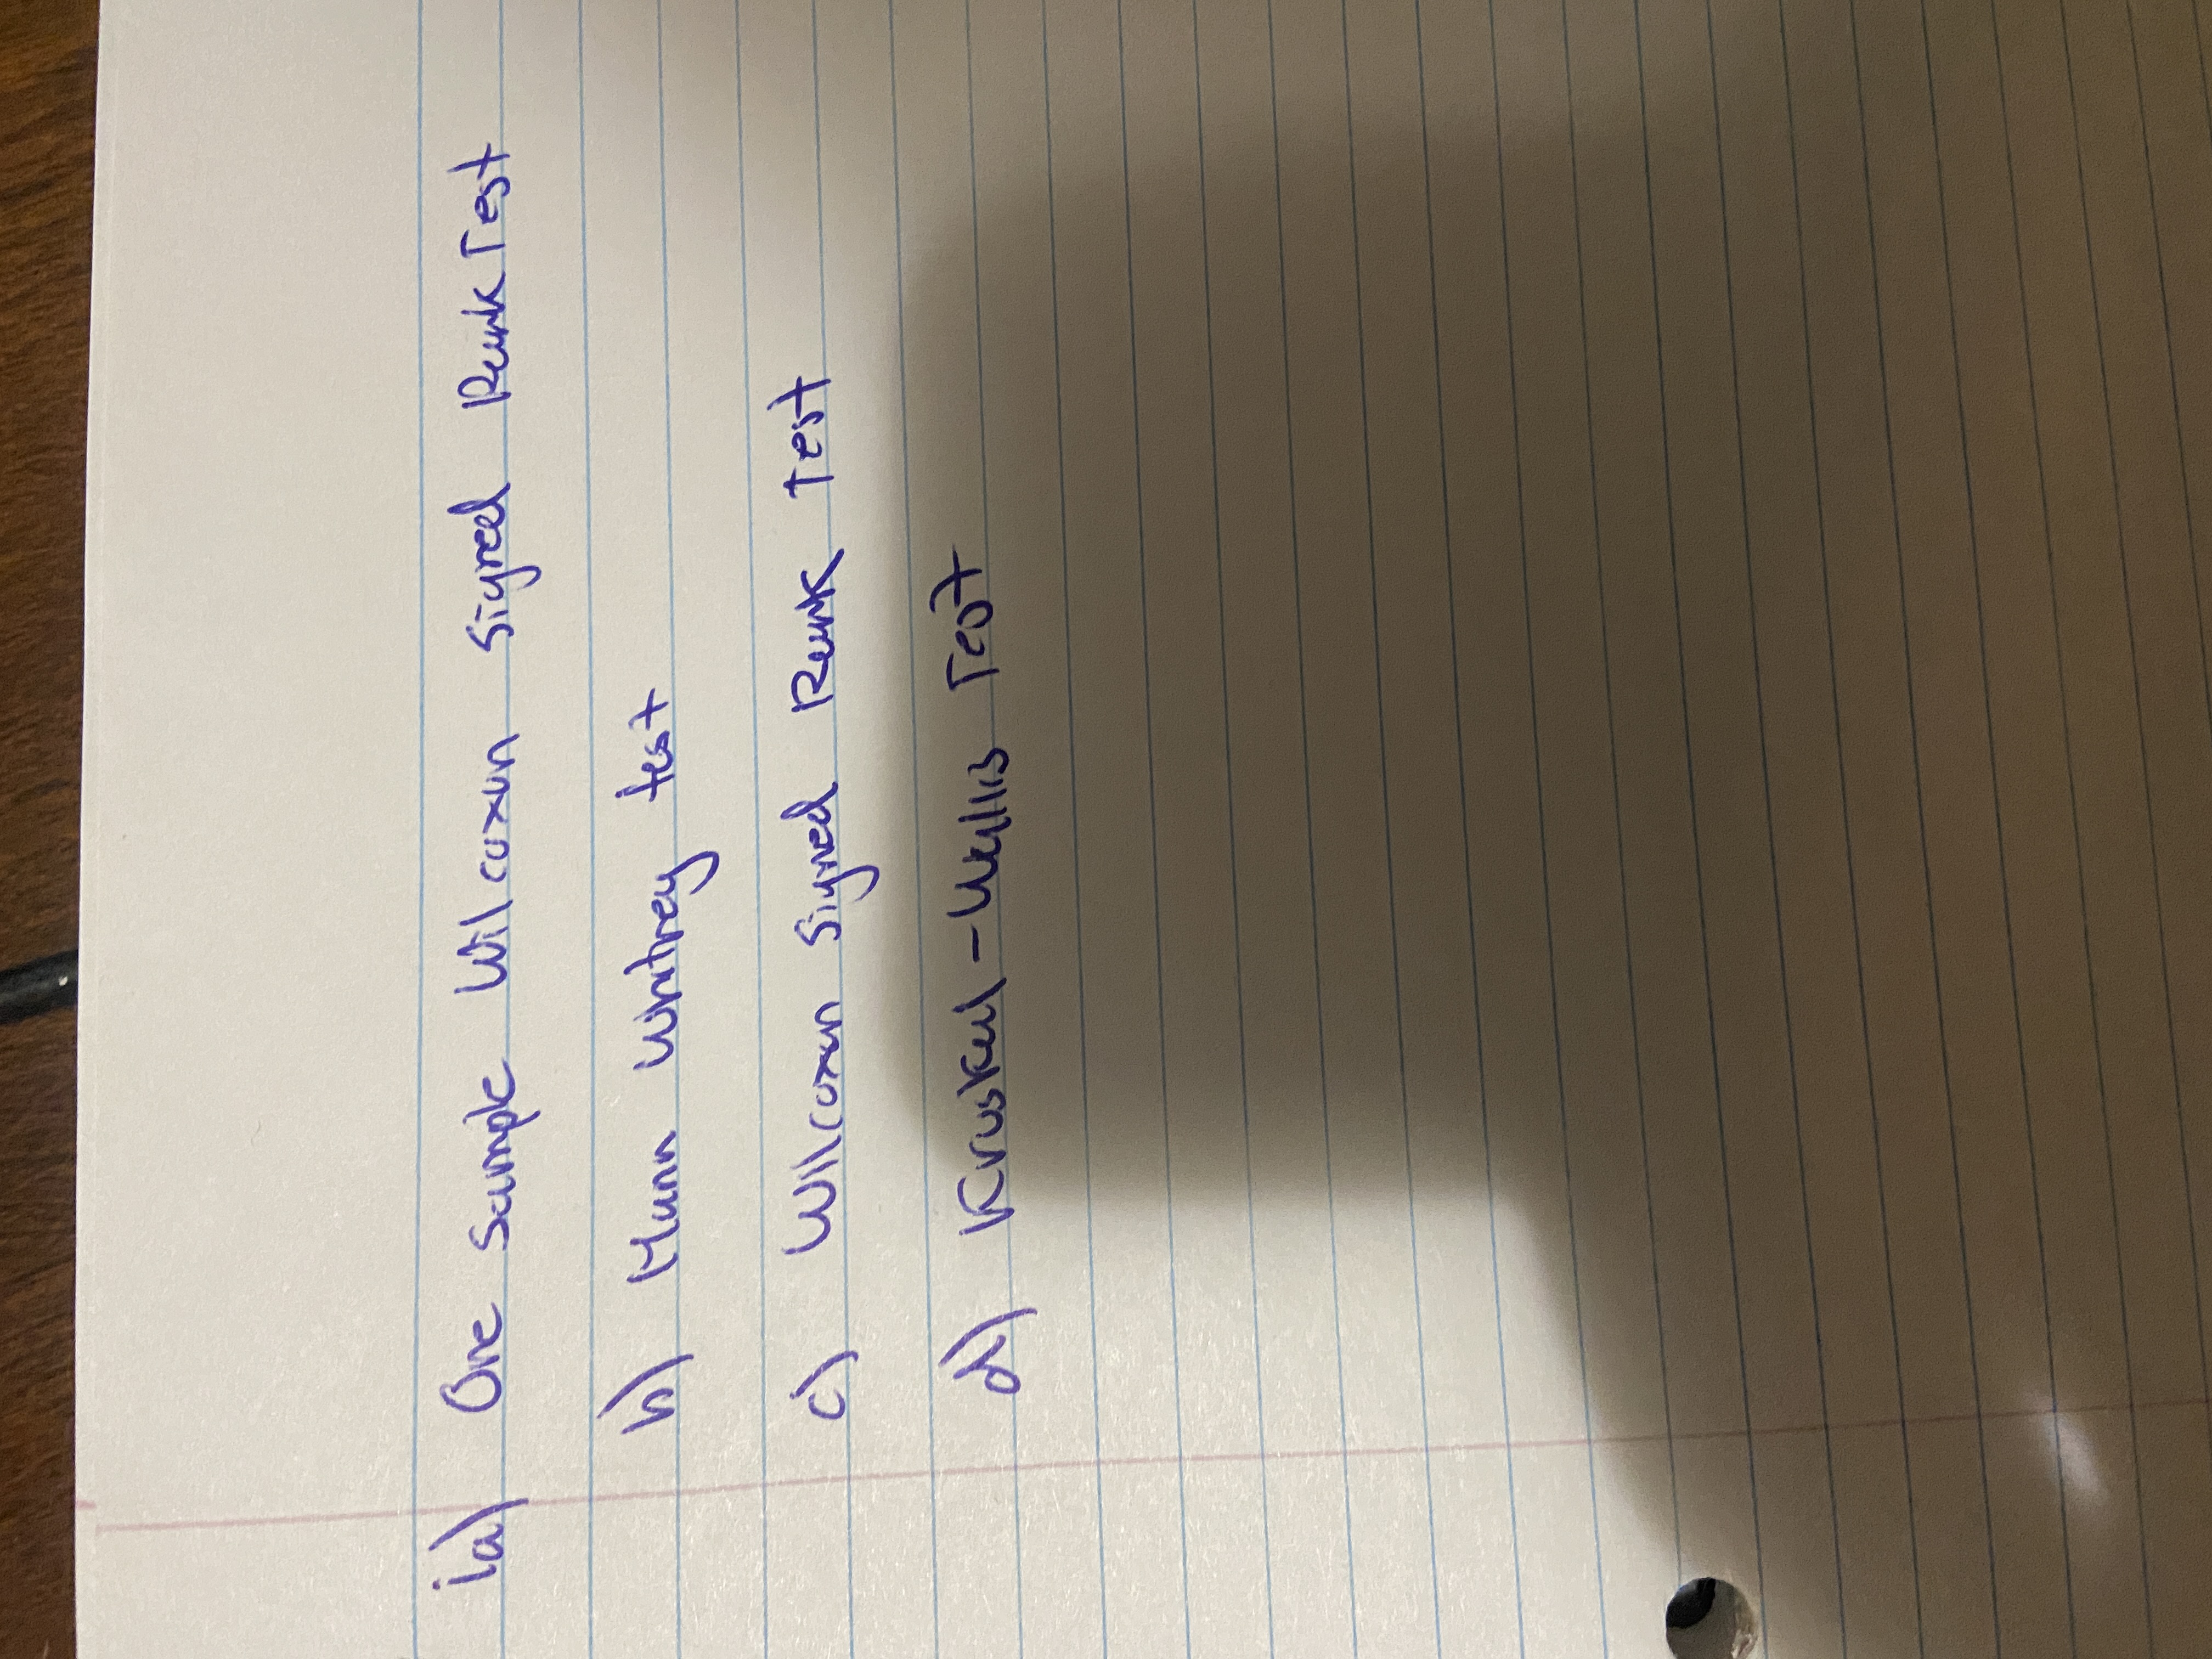 1a) One Sample Wilcoxon Signed Rank Test
b) Mann Whitney test
c) Wilcoxon Signed Rank Test
d) Kruskal-Wallis Test